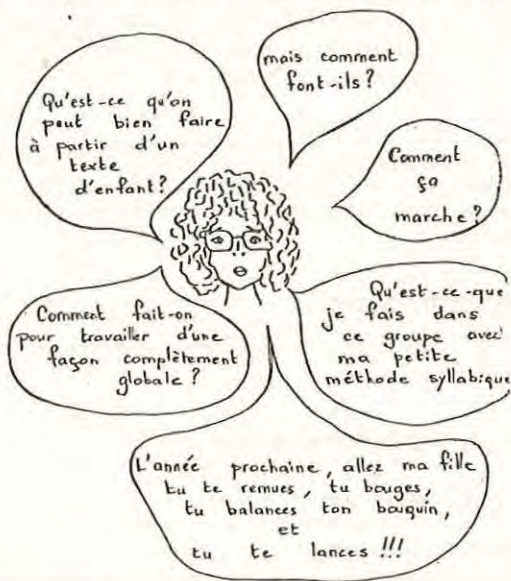 Qu'est-ce qu'on
peut bien faire
à partir d'un
texte
d'enfant?
mais comment
font-ils?
Comment
ça
marche?
Comment fait-on
pour travailler d'une
façon complètement
globale?
Qu'est-ce-que
je fais dans
ce groupe avec
ma petite
méthode syllabique
L'année prochaine, allez ma fille
tu te remues, tu bouges,
tu balances ton bouquin,
et
tu te lances!!!